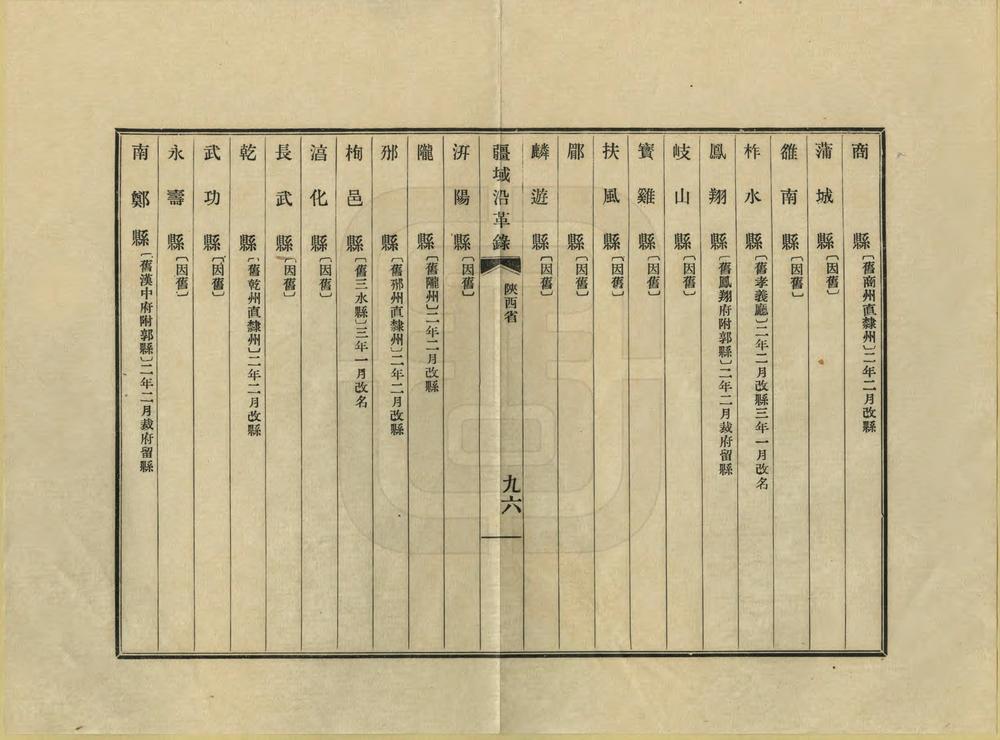 商縣〔舊商州直隸州〕二年二月改縣
蒲城縣〔因舊〕
雒南縣〔因舊〕
柞水縣〔舊孝義廳〕二年二月改縣三年一月改名
鳳翔縣〔舊鳳翔府附郭縣〕二年二月裁府留縣
岐山縣〔因舊〕
寳雞縣〔因舊〕
扶風縣〔因舊〕
郿縣〔因舊〕
麟遊縣〔因舊〕
疆域沿革錄 陝西省 九六
汧陽縣〔因舊〕
隴縣〔舊隴州〕二年二月改縣
邠縣〔舊邠州直隸州〕二年二月改縣
栒邑縣〔舊三水縣〕三年一月改名
淊化縣〔因舊〕
長武縣〔因舊〕
乾縣〔舊乾州直隸州〕二年二月改縣
武功縣〔因舊〕
永壽縣〔因舊〕
南鄭縣〔舊漢中府附郭縣〕二年二月裁府留縣